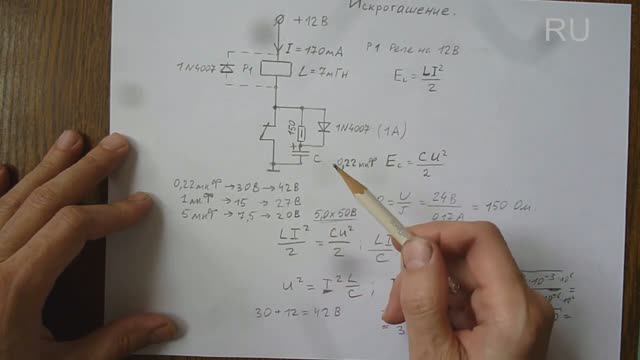 Искрогашение.
RU
+12В
I = 170мА
P1 Реле на 12В
1N4007
P1
L = 7мГн
E_L = LI²/2
150
1N4007 (1А)
+
C
0,22мкФ
E_C = CU²/2
0,22мкФ → 30В → 42В
1мкФ → 15 → 27В
5мкФ → 7,5 → 20В
5,0х50В
= U/J = 24В/0,17А = 150 Ом.
LI²/2 = CU²/2 ; LI
U² = I² L/C ;
30 + 12 = 42В